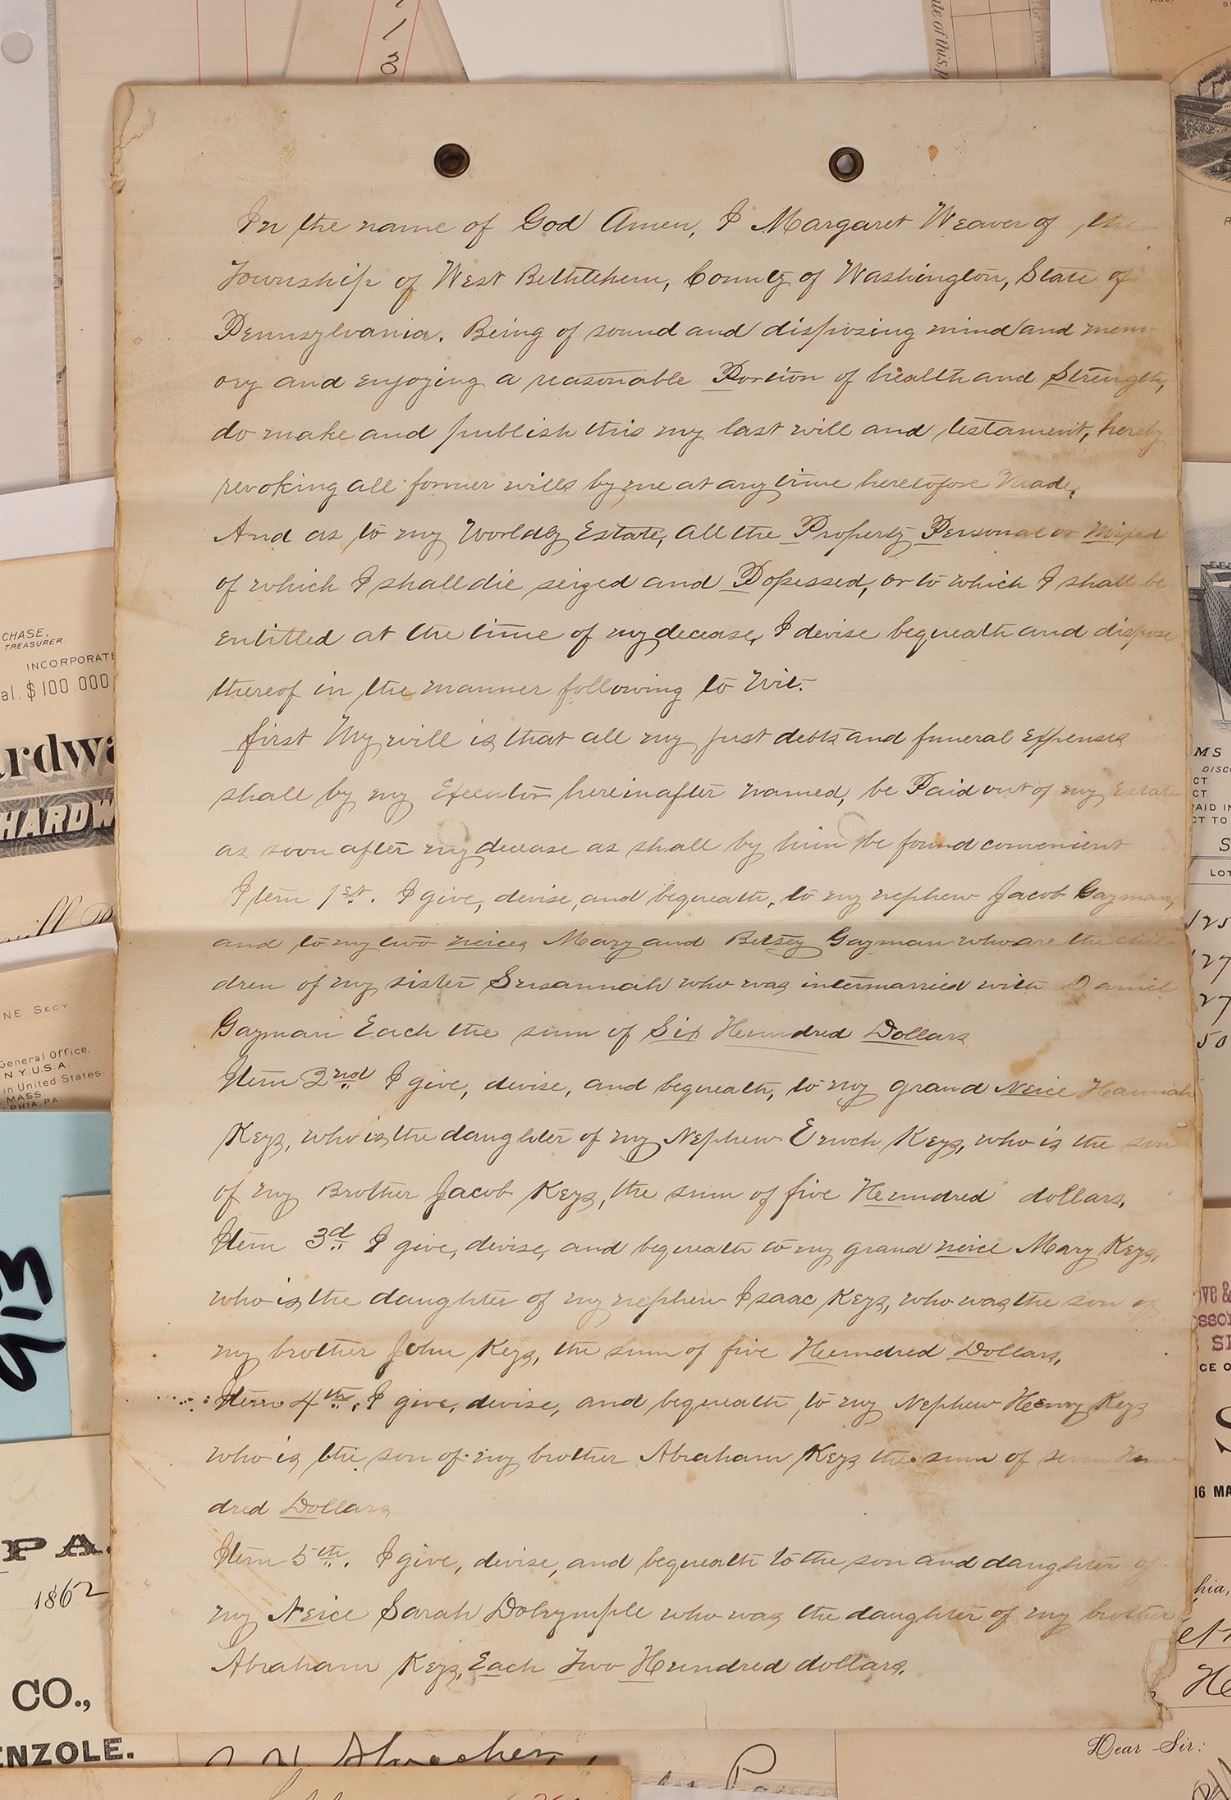 In the name of God Amen, I Margaret Weaver of the
Township of West Bethlehem, County of Washington, State of
Pennsylvania. Being of sound and disposing mind and mem
ory and enjoying a reasonable Portion of health and Strength,
do make and publish this my last will and testament, hereby
revoking all former wills by me at any time heretofore Made,
And as to my Worldly Estate, all the Property Personal or Mixed
of which I shall die seized and Possessed, or to which I shall be
entitled at the time of my decease, I devise bequeath and dispose
thereof in the manner following to Wit:
first My will is that all my just debts and funeral expenses
shall by my Executor hereinafter named, be Paid out of my Estate
as soon after my decease as shall by him be found convenient
Item 1st. I give, devise, and bequeath, to my nephew Jacob Gayman,
and to my two neices Mary and Betsey Gayman who are the chil
dren of my sister Susannah who was intermarried with Daniel
Gayman Each the sum of Six Hundred Dollars
Item 2nd I give, devise, and bequeath, to my grand Neice Hannah
Keys, who is the daughter of my Nephew Enoch Keys, who is the son
of my Brother Jacob Keys, the sum of five Hundred dollars.
Item 3d I give, devise, and bequeath to my grand neice Mary Keys,
who is the daughter of my nephew Isaac Keys, who was the son of
my brother John Keys, the sum of five Hundred Dollars,
Item 4th, I give, devise, and bequeath, to my Nephew Henry Keys
who is the son of my brother Abraham Keys the sum of seven Hun
dred Dollars
Item 5th. I give, devise, and bequeath to the son and daughter of
my Neice Sarah Dalrymple who was the daughter of my brother
Abraham Keys, Each Two Hundred dollars,
CHASE,
TREASURER.
INCORPORATE
al. $100 000
HARDW
NE SECY
General Office,
N.Y. U.S.A.
in United States
MASS
PHILA. PA
913
PA.
1862
CO.,
ENZOLE.
Dear Sir: